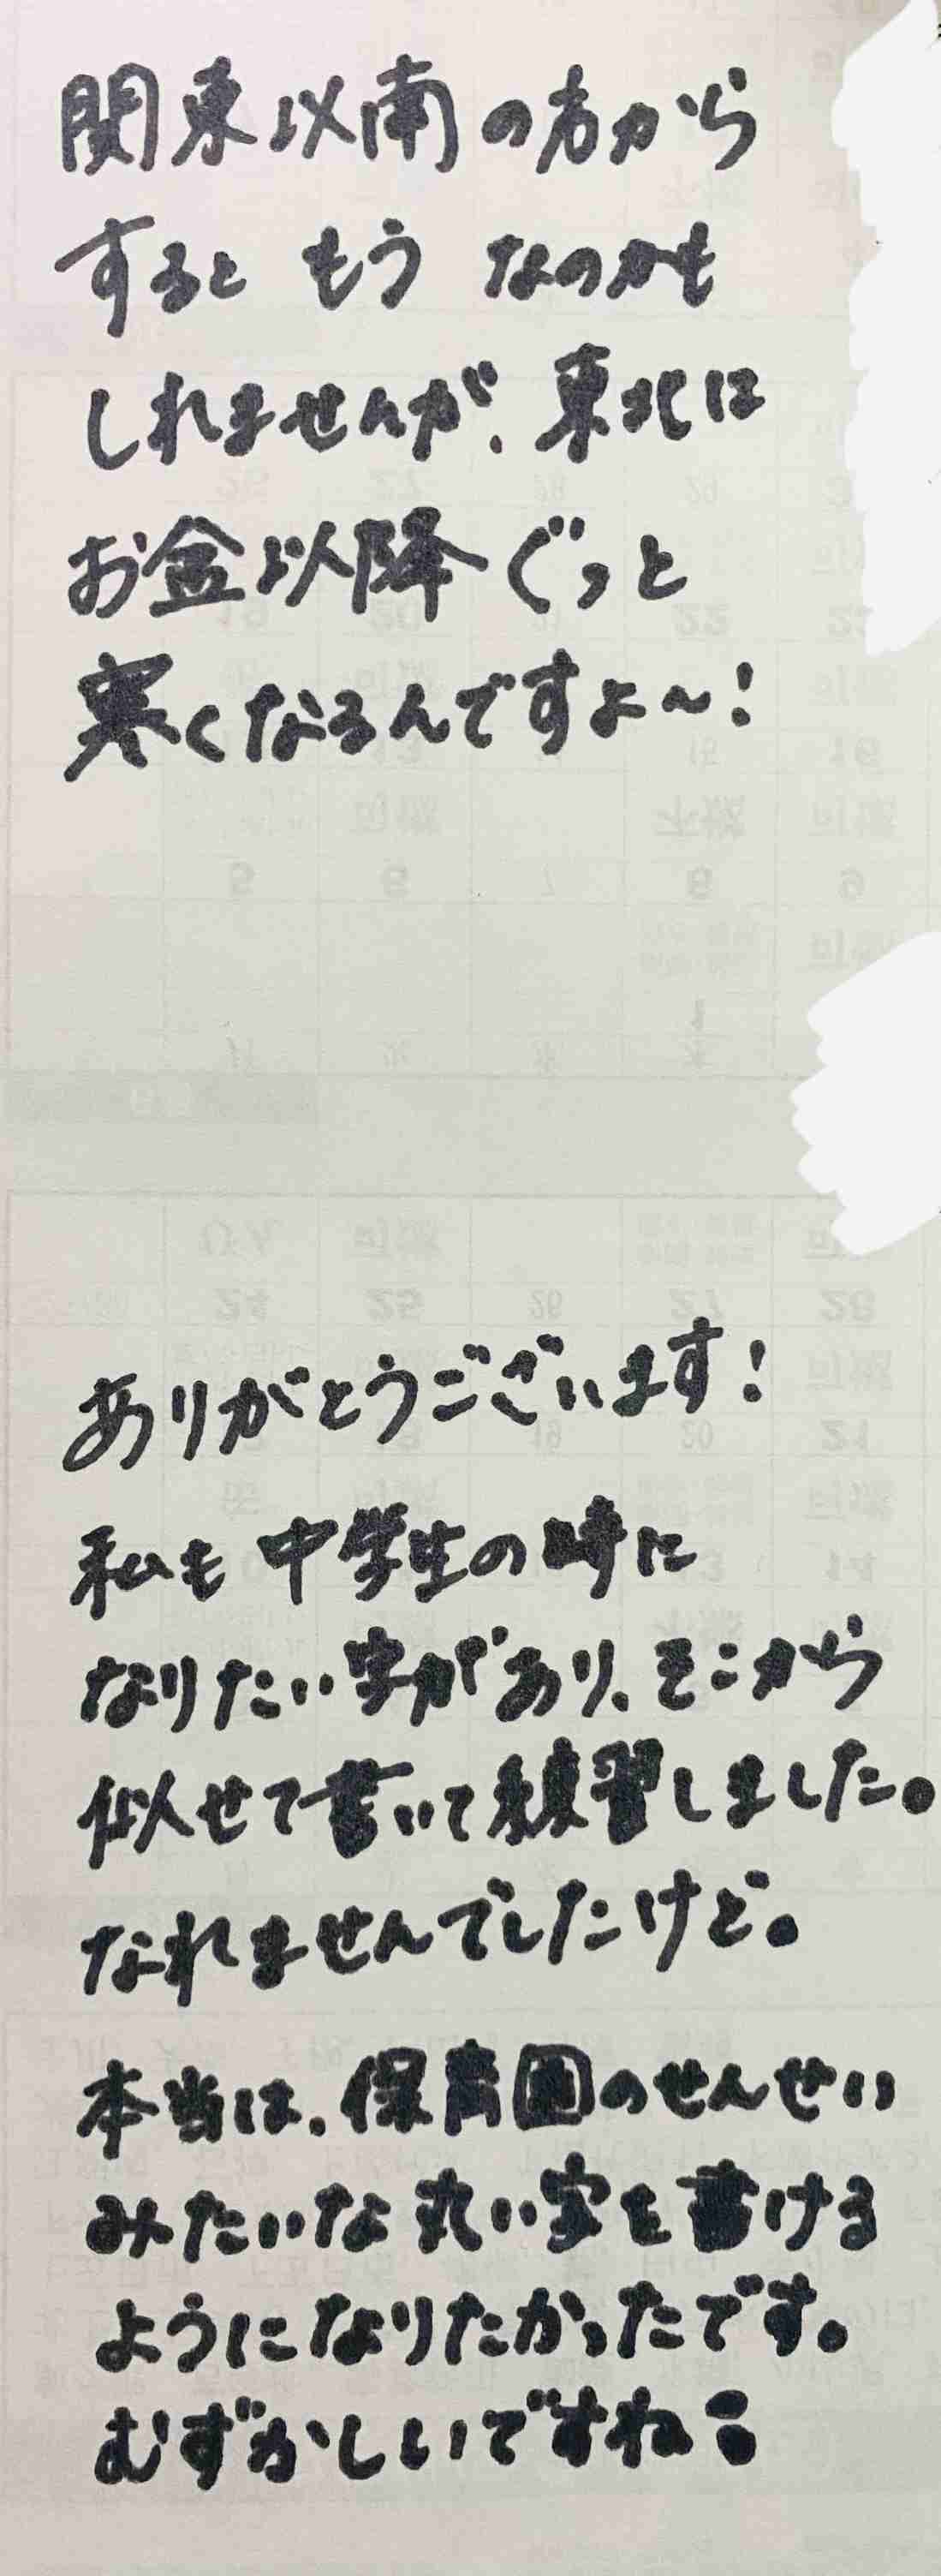 関東以南の方から
すると もう なのかも
しれませんが、東北は
お盆以降ぐっと
寒くなるんですよ〜!
ありがとうございます!
私も中学生の時に
なりたい字があり、そこから
似せて書いて練習しました。
なれませんでしたけど。
本当は、保育園のせんせい
みたいな丸い字を書ける
ようになりたかったです。
むずかしいですね